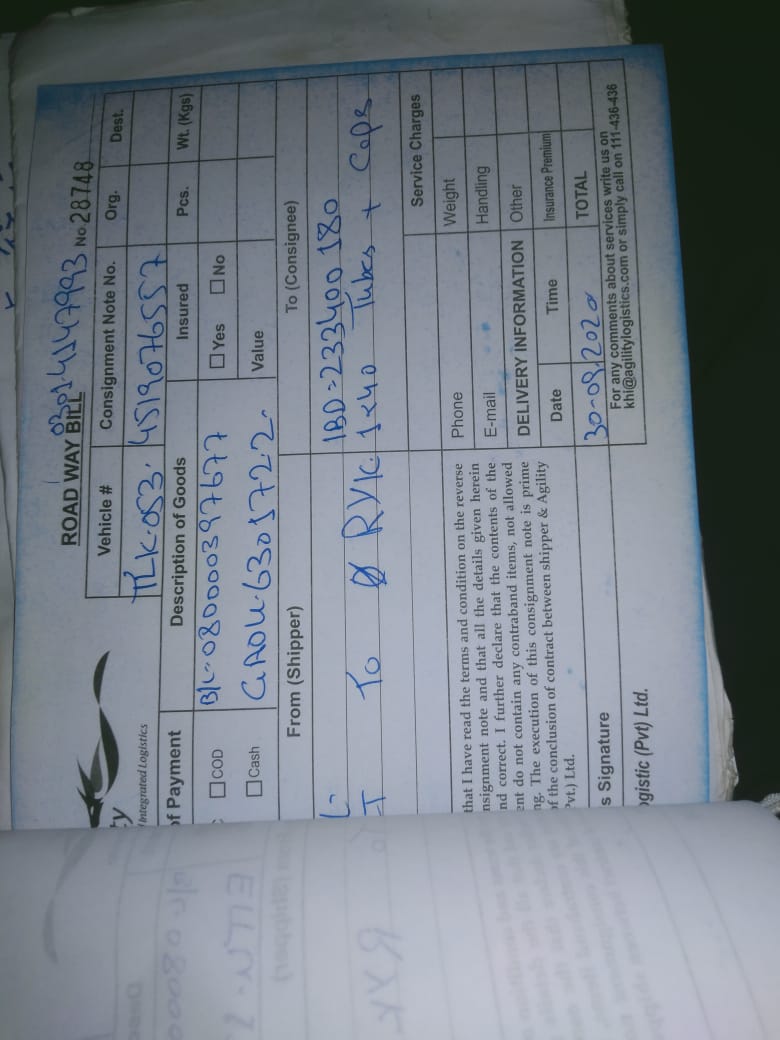 0301-4147993
ROAD WAY BILL No. 28748
ty
Integrated Logistics
Vehicle # Consignment Note No. Org. Dest.
TLK-053. 4519076557
of Payment Description of Goods Insured Pcs. Wt. (Kgs)
COD B/L-080000397677 Yes No
Cash GAOU-6301722. Value
From (Shipper) To (Consignee)
L- IBD=233400180
T To RYK. 1x40 Tubes + Caps
Service Charges
that I have read the terms and condition on the reverse
nsignment note and that all the details given herein
nd correct. I further declare that the contents of the
ent do not contain any contraband items, not allowed
ng. The execution of this consignment note is prime
of the conclusion of contract between shipper & Agility
Pvt.) Ltd.
Phone Weight
E-mail Handling
DELIVERY INFORMATION Other
Date Time Insurance Premium
30-09.2020 TOTAL
s Signature
For any comments about services write us on
khi@agilitylogistics.com or simply call on 111-436-436
ogistic (Pvt) Ltd.